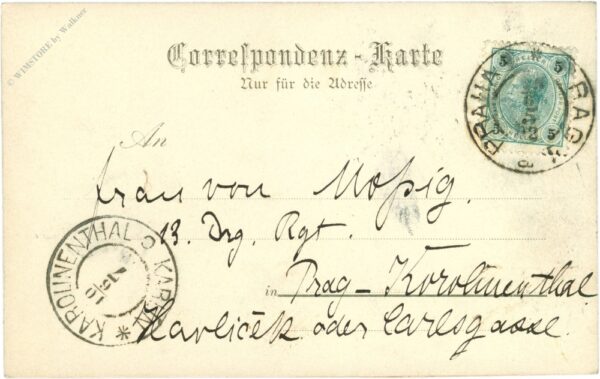 © WIMSTORE by Walkner
Correspondenz-Karte
Nur für die Adresse
5 5
PRAHA PRAG
An
Frau von Mossig.
13. Drg. Rgt.
in Prag-Karolinenthal
Havliček oder Carlsgasse.
KAROLINENTHAL